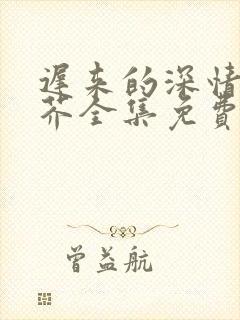 遲来的深情
芥全集免費
曾益航